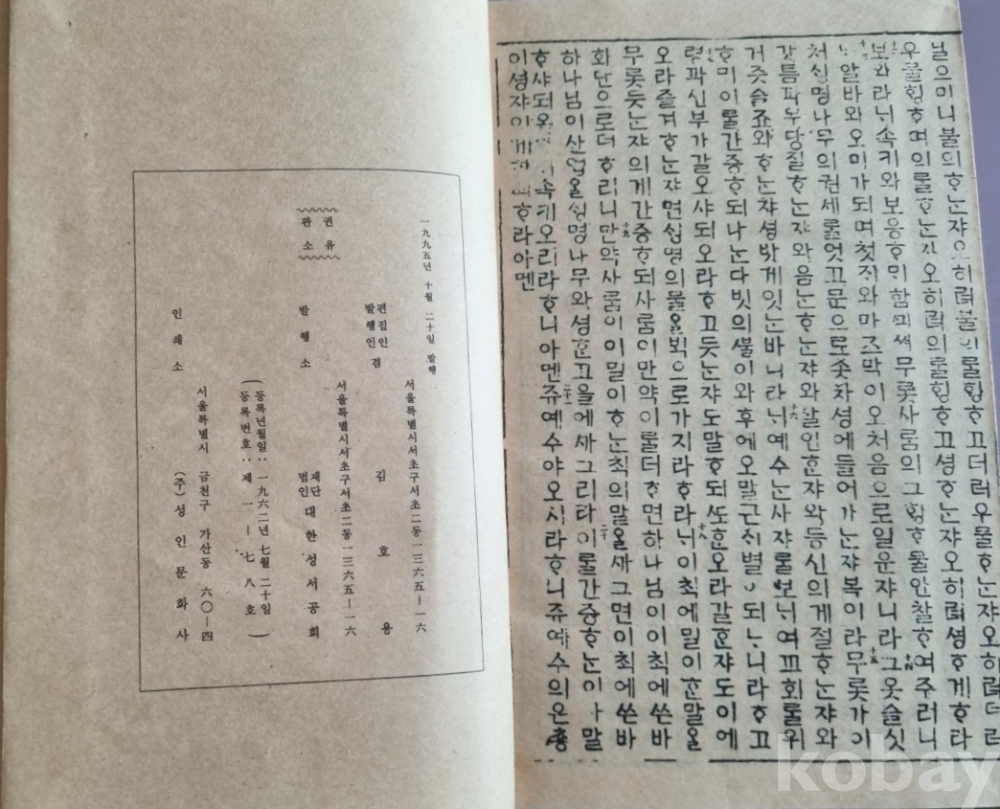 닐으미니불의ᄒᆞ눈쟈오히려불의룰힝ᄒᆞ고더러우물ᄒᆞ눈쟈오히려더러
우물힝ᄒᆞ며의룰ᄒᆞ눈쟈오히려의룰힝ᄒᆞ고셩ᄒᆞ눈쟈오히려셩ᄒᆞ게ᄒᆞ라
보와라ᄂᆡ속키와보응ᄒᆞ미함ᄭᅴ무롯사룸의그힝ᄒᆞ물안찰ᄒᆞ여주러니
알바와오미가되며첫재와마즈막이오처음으로일운쟈니라그옷슬싯
처싱명나무의권셰룰엇고문으로좃차셩에들어가눈쟈복이라무롯가이
갓틈과무당질ᄒᆞ눈쟈와음눈ᄒᆞ눈쟈와살인ᄒᆞᆫ쟈와등신의게절ᄒᆞ눈쟈와
거즛슬죠와ᄒᆞ눈쟈셩밧게잇눈바니라ᄂᆡ예수눈사쟈룰보ᄂᆡ여교회룰위
ᄒᆞ미이룰간증ᄒᆞ되나눈다빗의ᄲᅮᆯ이와후에오말근ᄉᆡ별이되ᄂᆞ니라ᄒᆞ고
령과신부가갈오샤되오라ᄒᆞ고듯눈쟈도말ᄒᆞ되ᄯᅩᄒᆞᆫ오라갈ᄒᆞᆫ쟈도이에
오라즐겨ᄒᆞ눈쟈면싱명의물을빅으로가지라ᄒᆞ라ᄂᆡ이척에밀이ᄒᆞᆫ말을
무롯듯눈쟈의게간증ᄒᆞ되사룸이만약이룰더ᄒᆞ면하나님이이척에쓴바
화단으로더ᄒᆞ리니만약사룸이이밀이ᄒᆞᆫ척의말을ᄯᅦ그면이척에쓴바
하나님이산업을싱명나무와셩ᄒᆞᆫ고을에ᄯᅦ그리라이룰간증ᄒᆞ눈이말
ᄒᆞ샤되속키오리라ᄒᆞ니아멘쥬예수야오시라ᄒᆞ니쥬예수의은춍
이셩쟈의게ᄒᆞ라아멘
一九九五년 十월 二十일 발행
서울특별시서초구서초二동一三六五ー一六
편집인 겸
발행인
김호용
서울특별시서초구서초二동一三六五ー一六
발행소
재단
법인
대한성서공회
권유
판소
(등록년월일:一九六二년 七월 二十일)
(등록번호:제 一ー七八호)
서울특별시 금천구 가산동 六〇ー四
인쇄소
(주)성인문화사
kobay